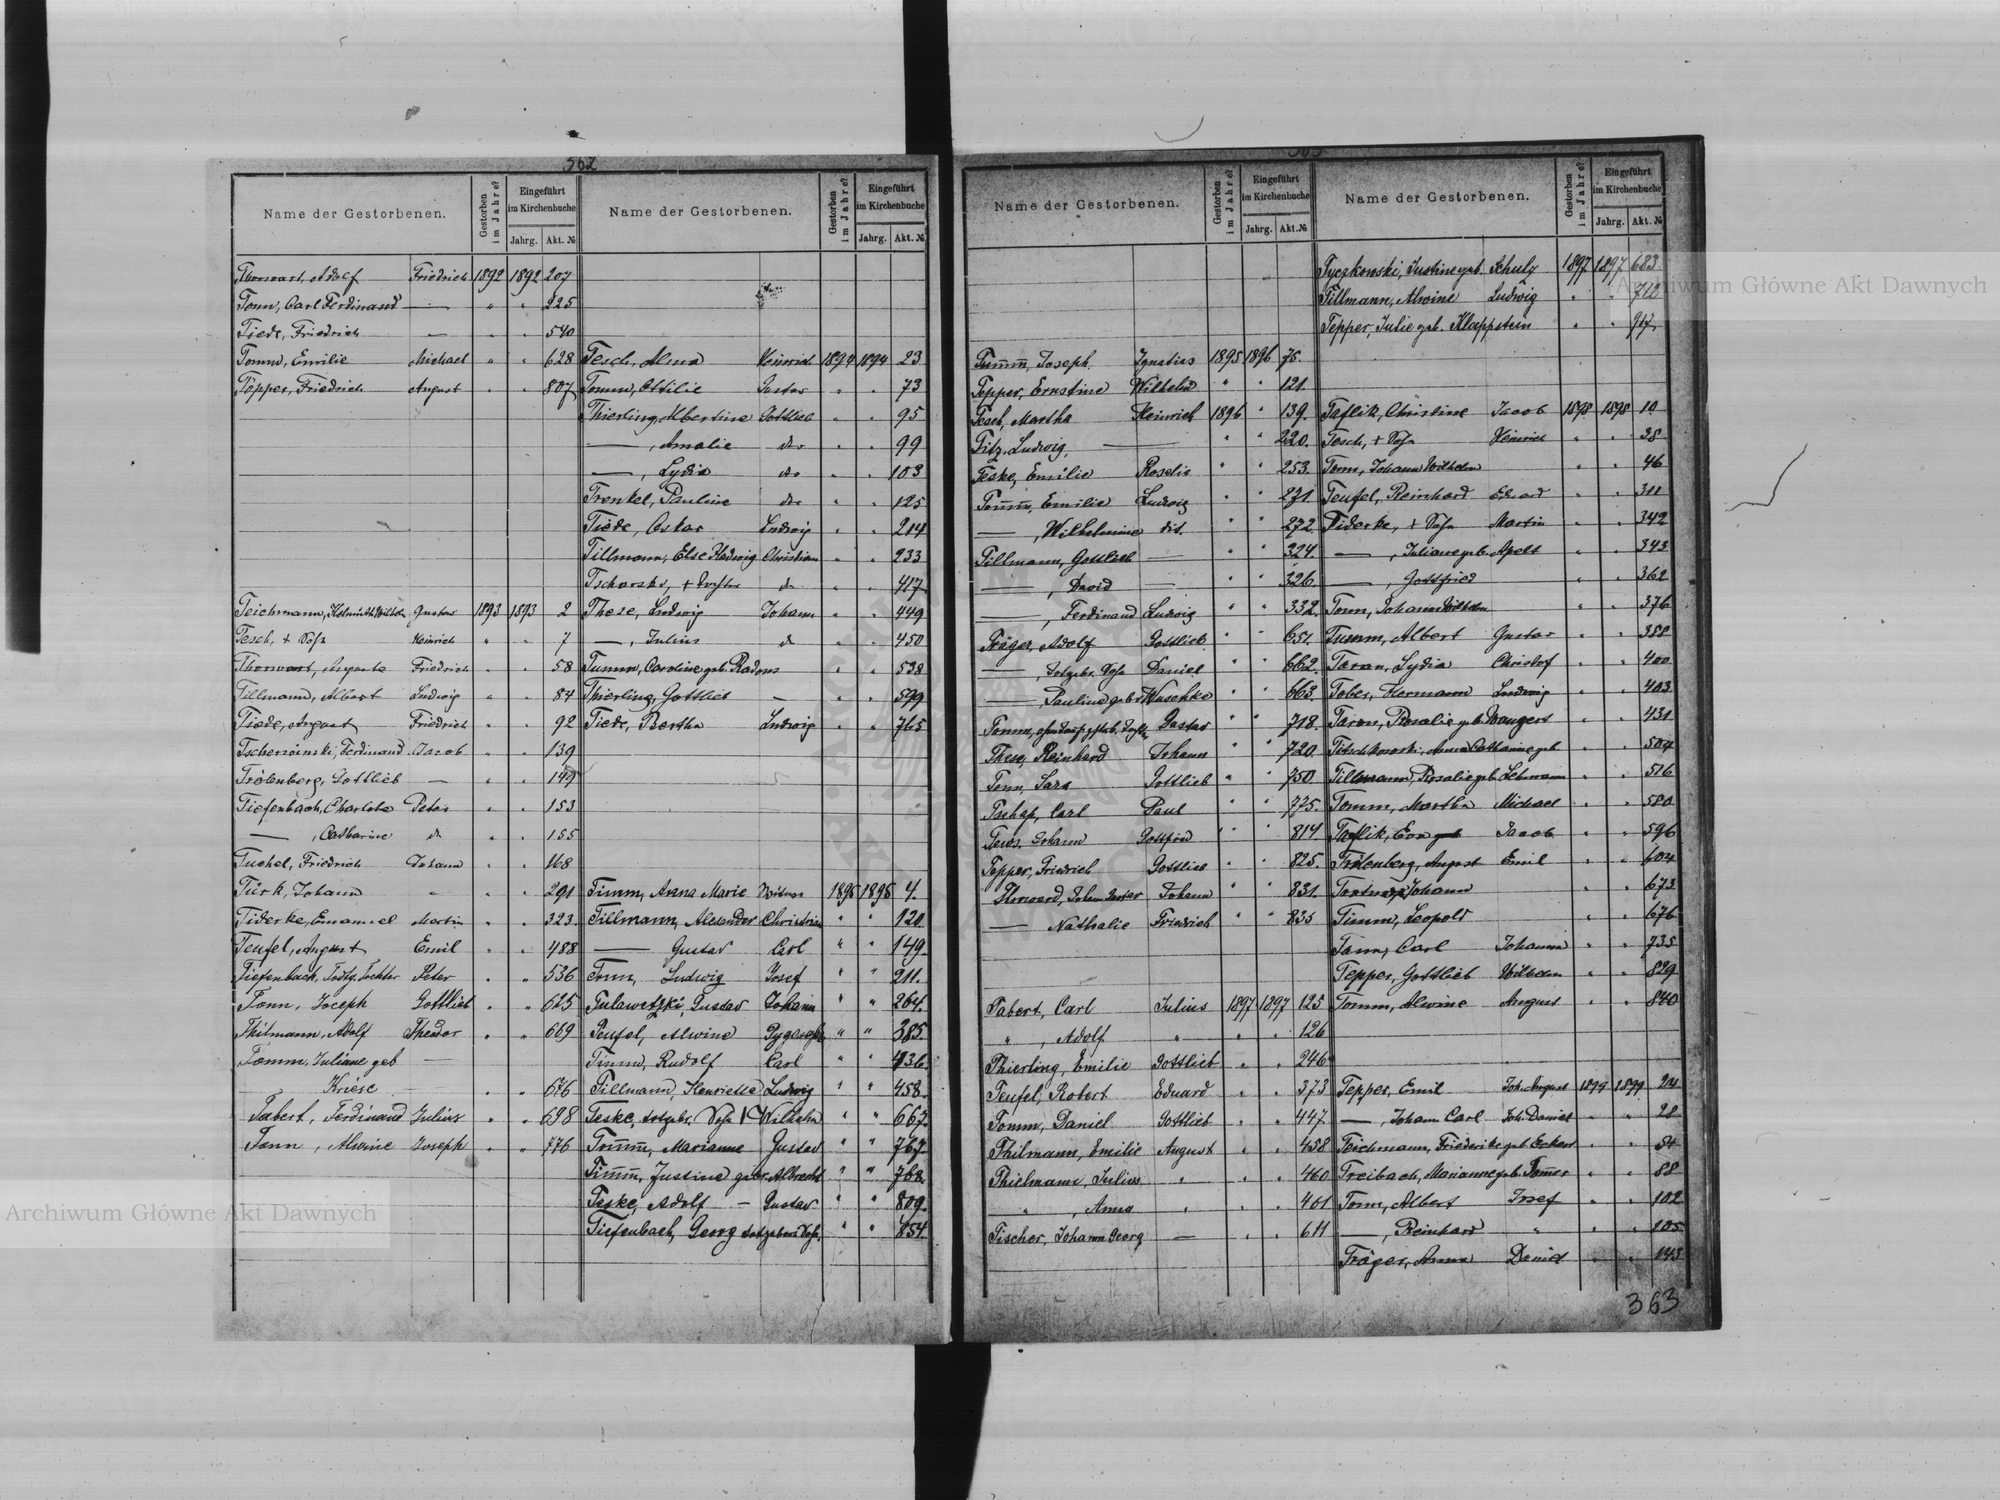 562
Name der Gestorbenen. Gestorben im Jahre? Eingeführt im Kirchenbuche Jahrg. Akt. №
Thorwart, Adolf Friedrich 1892 1892 207
Tonn, Carl Ferdinand — " " 225
Tiede, Friedrich — " " 540
Tomm, Emilie Michael " " 628
Töpper, Friedrich August " " 807
Teichmann, Helmuth Wilhelm Gustav 1893 1893 2
Tesch, + Sohn Heinrich " " 7
Thorwart, Auguste Friedrich " " 58
Tillmann, Albert Ludwig " " 84
Tiede, August Friedrich " " 92
Ferdinand Jacob " " 139
Trölenberg, Gottlieb — " " 149
Tiefenbach, Charlotte Peter " " 153
— , Catharine do " " 155
Tuchel, Friedrich Johann " " 168
Türk, Johann " " " 291
Tiderke, Emanuel Martin " " 323
Teufel, August Emil " " 488
Tiefenbach, Todtg. Tochter Peter " " 536
Tonn, Joseph Gottlieb " " 625
Thilmann, Adolf Theodor " " 669
Tomm, Juliane geb —
Kriese " " 676
Tabert, Ferdinand Julius " " 698
Tonn, Alwine Joseph " " 776
Name der Gestorbenen. Gestorben im Jahre? Eingeführt im Kirchenbuche Jahrg. Akt. №
Tesch, Alma Heinrich 1894 1894 23
Tomm, Ottilie Gustav " " 73
Thierling, Albertine Gottlieb " " 95
— , Amalie do " " 99
— , Lydia do " " 103
Trenkel, Pauline do " " 125
Tiede, Oskar Ludwig " " 214
Tillmann, Else Hedwig Christian " " 233
+ Tochter do " " 417
These, Ludwig Johann " " 449
— , Julius do " " 450
Tumm, Caroline geb. Radons " " 538
Thierling, Gottlieb — " " 599
Tiede, Bertha Ludwig " " 765
Timm, Anna Marie 1895 1895 4.
Tillmann, Alexander Christian " " 120
— Gustav Carl " " 149.
Tonn, Ludwig Josef " " 211.
Tulawetzki, Gustav Johann " " 264.
Teufel, Alwine " " 385.
Timm, Rudolf Carl " " 436.
Tillmann, Henriette Ludwig " " 458.
Teske, todtgebr. Sohn Wilhelm " " 667.
Tomm, Marianne Gustav " " 767.
Timm, Justine gebr. Albrecht " " 768.
Teske, Adolf — Gustav " " 809.
Tiefenbach, Georg todtgebor. Sohn. " " 854.
Name der Gestorbenen. Gestorben im Jahre? Eingeführt im Kirchenbuche Jahrg. Akt. №
Tumm, Joseph Ignatius 1895 1896 75.
Tepper, Ernstine Wilhelm " " 121.
Tesch, Martha Heinrich 1896 " 139.
Titz, Ludwig, — " " 220.
Teske, Emilie Roselie " " 253.
Tomm, Emilie Ludwig " " 271
— , Wilhelmine dit. " " 272
Tillmann, Gottlieb — " " 324.
— , David — " " 326.
— , Ferdinand Ludwig " " 332.
Träger, Adolf Gottlieb. " " 651.
— , Totgebr. Sohn Daniel " " 662.
— , Pauline gebr Waschke " " 663.
Tomm, Gustav " " 718.
These, Reinhard Johann " " 720.
Tonn, Sara Gottlieb " " 750.
Carl Paul " " 775.
Tews, Johann Gottfried " " 814.
Tepper, Friedrich Gottlieb " " 825.
Johann Gustav Johann " " 831.
— Nathalie Friedrich " " 835
Tabert, Carl Julius 1897 1897 125
" , Adolf " " " 126
Thierling, Emilie Gottlieb " " 246
Teufel, Robert Eduard " " 373
Tomm, Daniel Gottlieb " " 447
Thilmann, Emilie August " " 458
Thielmann, Julius " " " 460
" , Anna " " " 461
Tischer, Johann Georg — " " 611
Name der Gestorbenen. Gestorben im Jahre? Eingeführt im Kirchenbuche Jahrg. Akt. №
Tyczkowski, Justine geb. Schulz 1897 1897 683
Tillmann, Alwine Ludwig " " 712
Tepper, Julie geb. Klappstein " " 917.
Taflik, Christine Jacob 1898 1898 10
Tesch, + Sohn Heinrich " " 38
Tonn, Johann Wilhelm " " 46
Teufel, Reinhard Eduard " " 311
Tiderke, + Sohn Martin " " 342
— , Juliane geb. Apelt " " 343
— , Gottfried " " 362
Tonn, Johann Wilhelm " " 376
Tumm, Albert Gustav " " 388
Taran, Lydia Christof " " 400
Tober, Hermann Ludwig " " 403
Taron, Rosalie geb. Wangert " " 431
Anna Catharine geb " " 504
Tillmann, Rosalie geb. Lehmann " " 516
Tomm, Martha Michael " " 580
Taflik, Eva geb Jacob " " 596
Trölenberg, August Emil " " 604
Johann " " 673
Timm, Leopold " " 676
Tann, Carl Johann " " 735
Tepper, Gottlieb Wilhelm " " 829
Tomm, Alwine August " " 840
Tepper, Emil Joh. August 1899 1899 24
— , Johann Carl Joh. Daniel " " 28
Teichmann, Friederike geb Eckert " " 54
Treibach, Marianne geb. Tomer " " 88
Tonn, Albert Josef " " 102
— , Reinhard " " " 105
Träger, Anna Daniel " " 143
363
Archiwum Główne Akt Dawnych
Archiwum Główne Akt Dawnych